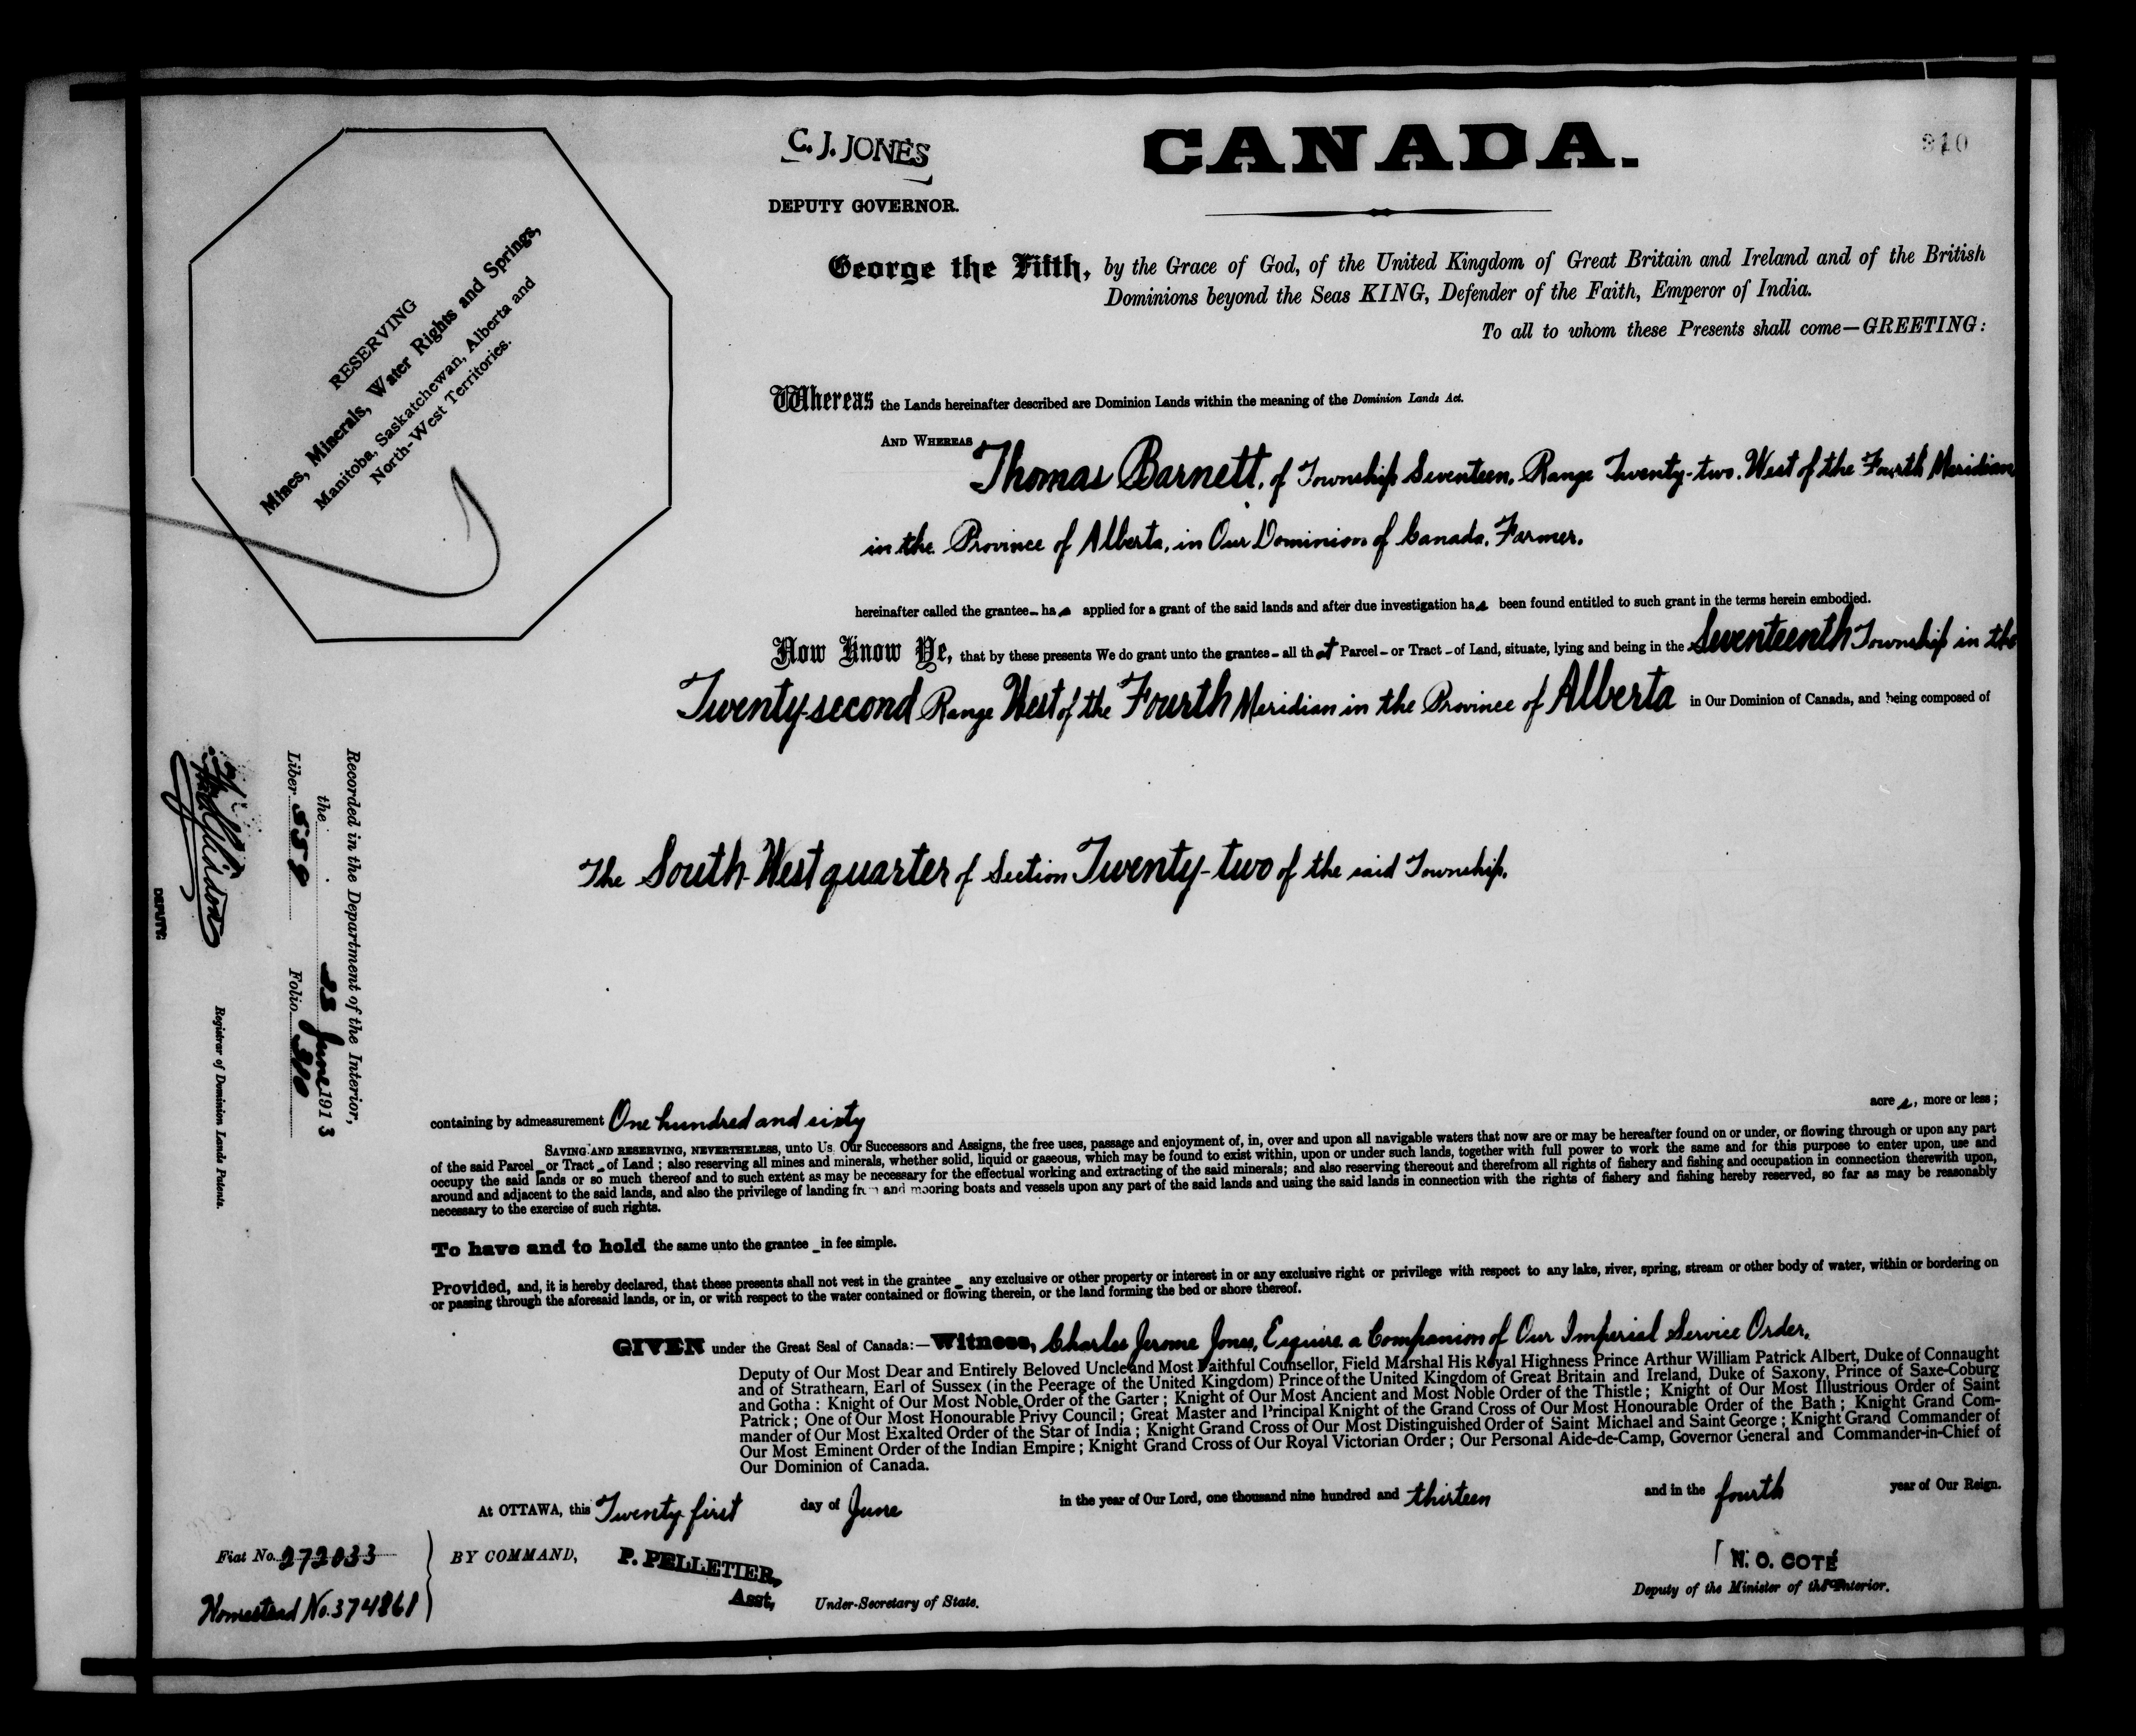 C. J. JONES
DEPUTY GOVERNOR.
CANADA.
310
RESERVING
Mines, Minerals, Water Rights and Springs,
Manitoba, Saskatchewan, Alberta and
North-West Territories.
George the Fifth, by the Grace of God, of the United Kingdom of Great Britain and Ireland and of the British
Dominions beyond the Seas KING, Defender of the Faith, Emperor of India.
To all to whom these Presents shall come—GREETING:
Whereas the Lands hereinafter described are Dominion Lands within the meaning of the Dominion Lands Act.
AND WHEREAS Thomas Barnett, of Township Seventeen, Range Twenty-two, West of the Fourth Meridian
in the Province of Alberta, in Our Dominion of Canada, Farmer,
hereinafter called the grantee – has applied for a grant of the said lands and after due investigation has been found entitled to such grant in the terms herein embodied.
Now Know Ye, that by these presents We do grant unto the grantee – all that Parcel – or Tract – of Land, situate, lying and being in the Seventeenth Township in the
Twenty-second Range West of the Fourth Meridian in the Province of Alberta in Our Dominion of Canada, and being composed of
The South-West quarter of Section Twenty-two of the said Township.
Recorded in the Department of the Interior,
the 23 June 1913
Liber 559 Folio 310
DEPUTY
Registrar of Dominion Lands Patents.
containing by admeasurement One hundred and sixty acres, more or less;
SAVING AND RESERVING, NEVERTHELESS, unto Us, Our Successors and Assigns, the free uses, passage and enjoyment of, in, over and upon all navigable waters that now are or may be hereafter found on or under, or flowing through or upon any part
of the said Parcel – or Tract – of Land; also reserving all mines and minerals, whether solid, liquid or gaseous, which may be found to exist within, upon or under such lands, together with full power to work the same and for this purpose to enter upon, use and
occupy the said lands or so much thereof and to such extent as may be necessary for the effectual working and extracting of the said minerals; and also reserving thereout and therefrom all rights of fishery and fishing and occupation in connection therewith upon,
around and adjacent to the said lands, and also the privilege of landing from and mooring boats and vessels upon any part of the said lands and using the said lands in connection with the rights of fishery and fishing hereby reserved, so far as may be reasonably
necessary to the exercise of such rights.
To have and to hold the same unto the grantee – in fee simple.
Provided, and, it is hereby declared, that these presents shall not vest in the grantee – any exclusive or other property or interest in or any exclusive right or privilege with respect to any lake, river, spring, stream or other body of water, within or bordering on
or passing through the aforesaid lands, or in, or with respect to the water contained or flowing therein, or the land forming the bed or shore thereof.
GIVEN under the Great Seal of Canada:—Witness, Charles Jerome Jones, Esquire a Companion of Our Imperial Service Order,
Deputy of Our Most Dear and Entirely Beloved Uncle and Most Faithful Counsellor, Field Marshal His Royal Highness Prince Arthur William Patrick Albert, Duke of Connaught
and of Strathearn, Earl of Sussex (in the Peerage of the United Kingdom) Prince of the United Kingdom of Great Britain and Ireland, Duke of Saxony, Prince of Saxe-Coburg
and Gotha: Knight of Our Most Noble Order of the Garter; Knight of Our Most Ancient and Most Noble Order of the Thistle; Knight of Our Most Illustrious Order of Saint
Patrick; One of Our Most Honourable Privy Council; Great Master and Principal Knight of the Grand Cross of Our Most Honourable Order of the Bath; Knight Grand Com-
mander of Our Most Exalted Order of the Star of India; Knight Grand Cross of Our Most Distinguished Order of Saint Michael and Saint George; Knight Grand Commander of
Our Most Eminent Order of the Indian Empire; Knight Grand Cross of Our Royal Victorian Order; Our Personal Aide-de-Camp, Governor General and Commander-in-Chief of
Our Dominion of Canada.
At OTTAWA, this Twenty first day of June in the year of Our Lord, one thousand nine hundred and thirteen and in the fourth year of Our Reign.
Fiat No. 272033
Homestead No. 374861
BY COMMAND, P. PELLETIER,
Asst, Under-Secretary of State.
N. O. COTÉ
Deputy of the Minister of the Interior.